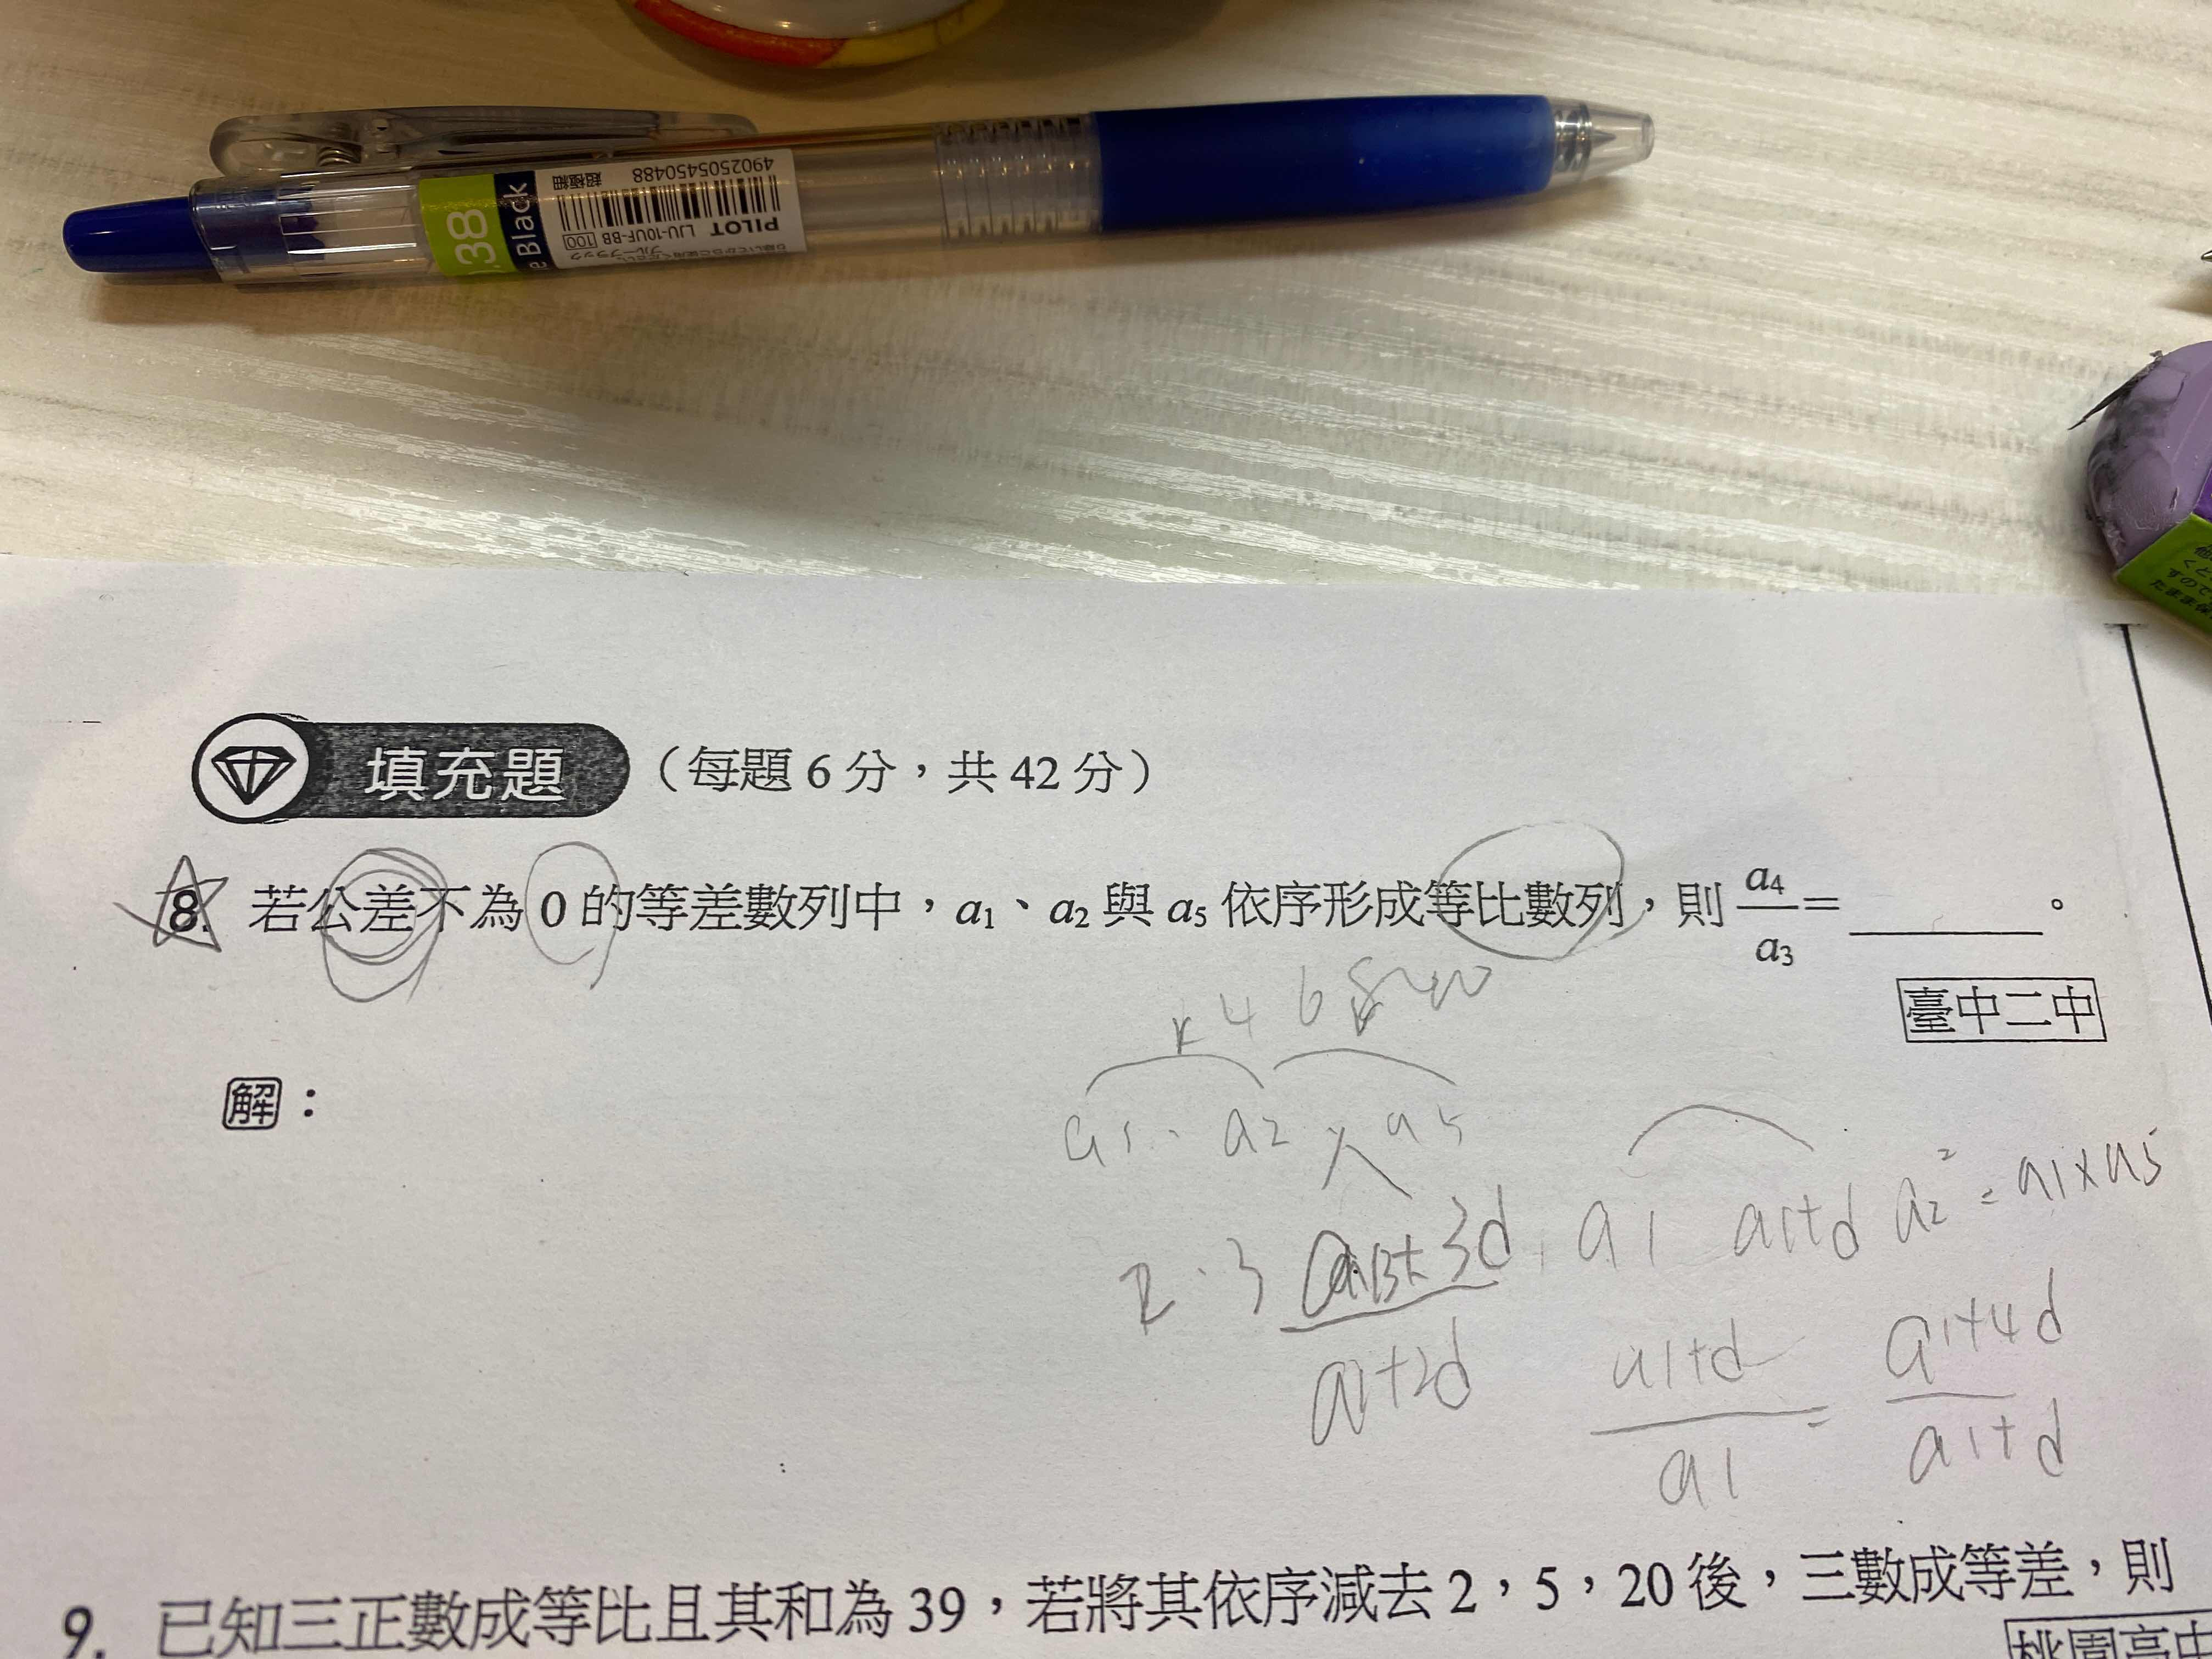 4902505450488 超極細
PILOT LJU-10UF-BB 100
ブルーブラック
.38
e Black
填充題 (每題 6 分,共 42 分)
8. 若公差不為 0 的等差數列中,a1、a2 與 a5 依序形成等比數列,則 a4/a3 = ______。
臺中二中
解:
r 4 6
a1、a2、a5
a2² = a1×a5
a1 a1+d
2.3
3d
a1+2d
a1+d/a1 = a1+4d/a1+d
9. 已知三正數成等比且其和為 39,若將其依序減去 2,5,20 後,三數成等差,則
桃園高中